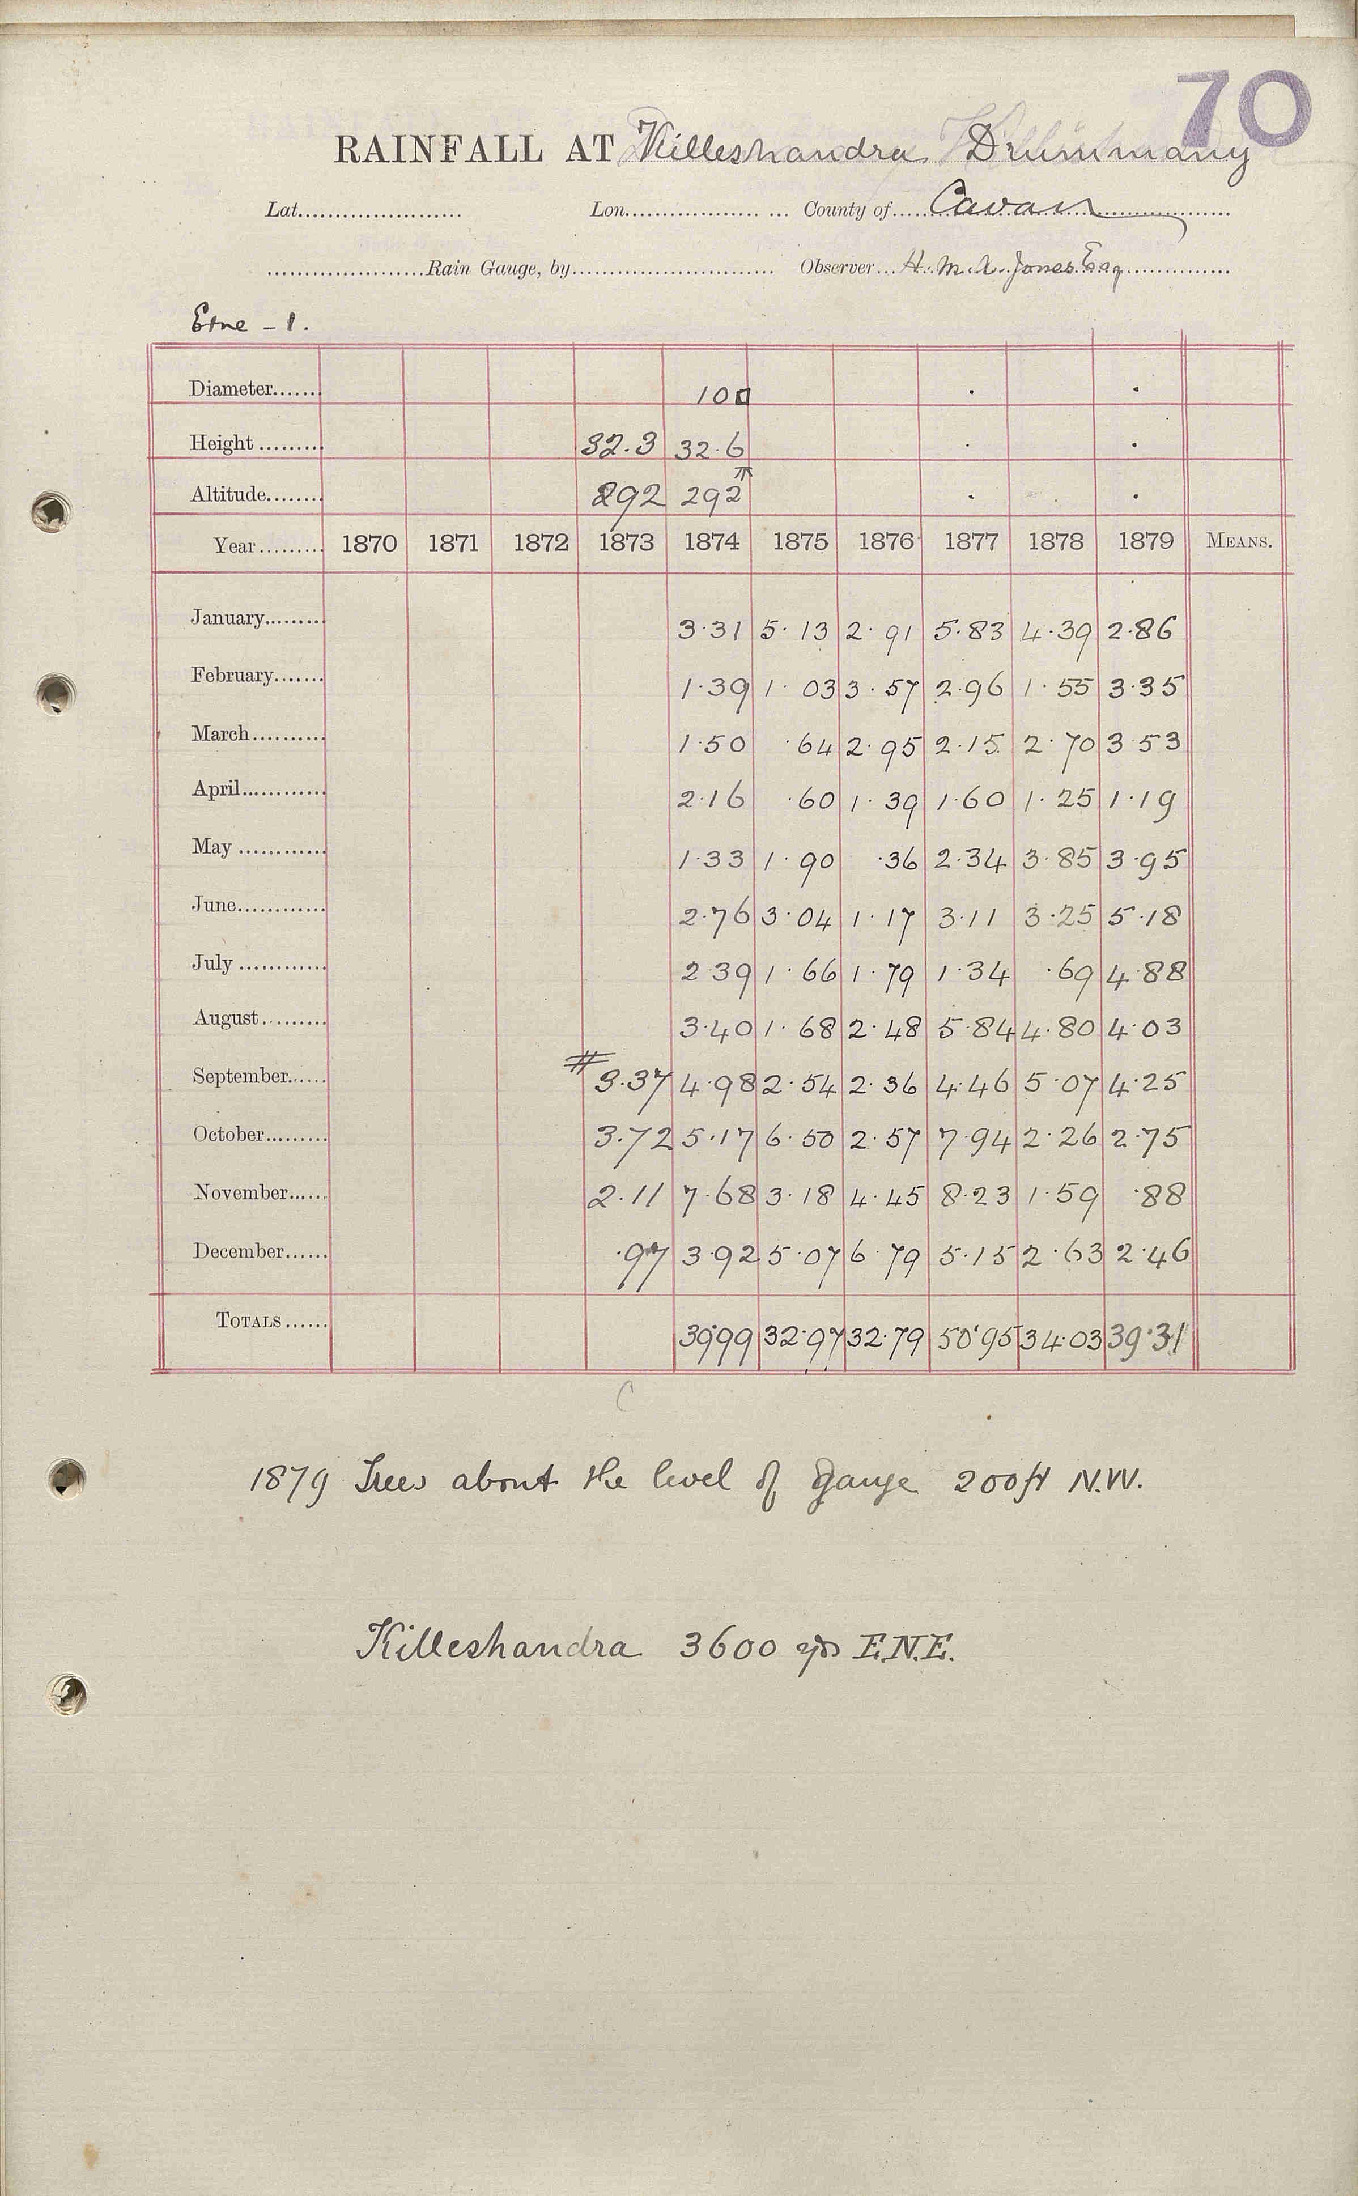 70
RAINFALL AT Killeshandra Drummany
Lat. Lon. County of Cavan
Rain Gauge, by Observer H. M. Jones Esq
Erne - 1.
Diameter 10□
Height 32.3 32.6
Altitude 292 292
Year 1870 1871 1872 1873 1874 1875 1876 1877 1878 1879 MEANS.
January 3.31 5.13 2.91 5.83 4.39 2.86
February 1.39 1.03 3.57 2.96 1.55 3.35
March 1.50 .64 2.95 2.15 2.70 3.53
April 2.16 .60 1.39 1.60 1.25 1.19
May 1.33 1.90 .36 2.34 3.85 3.95
June 2.76 3.04 1.17 3.11 3.25 5.18
July 2.39 1.66 1.79 1.34 .69 4.88
August 3.40 1.68 2.48 5.84 4.80 4.03
September # 3.37 4.98 2.54 2.36 4.46 5.07 4.25
October 3.72 5.17 6.50 2.57 7.94 2.26 2.75
November 2.11 7.68 3.18 4.45 8.23 1.59 .88
December .97 3.92 5.07 6.79 5.15 2.63 2.46
TOTALS 39.99 32.97 32.79 50.95 34.03 39.31
1879 Trees about the level of gauge 200ft N.W.
Killeshandra 3600 yds E.N.E.